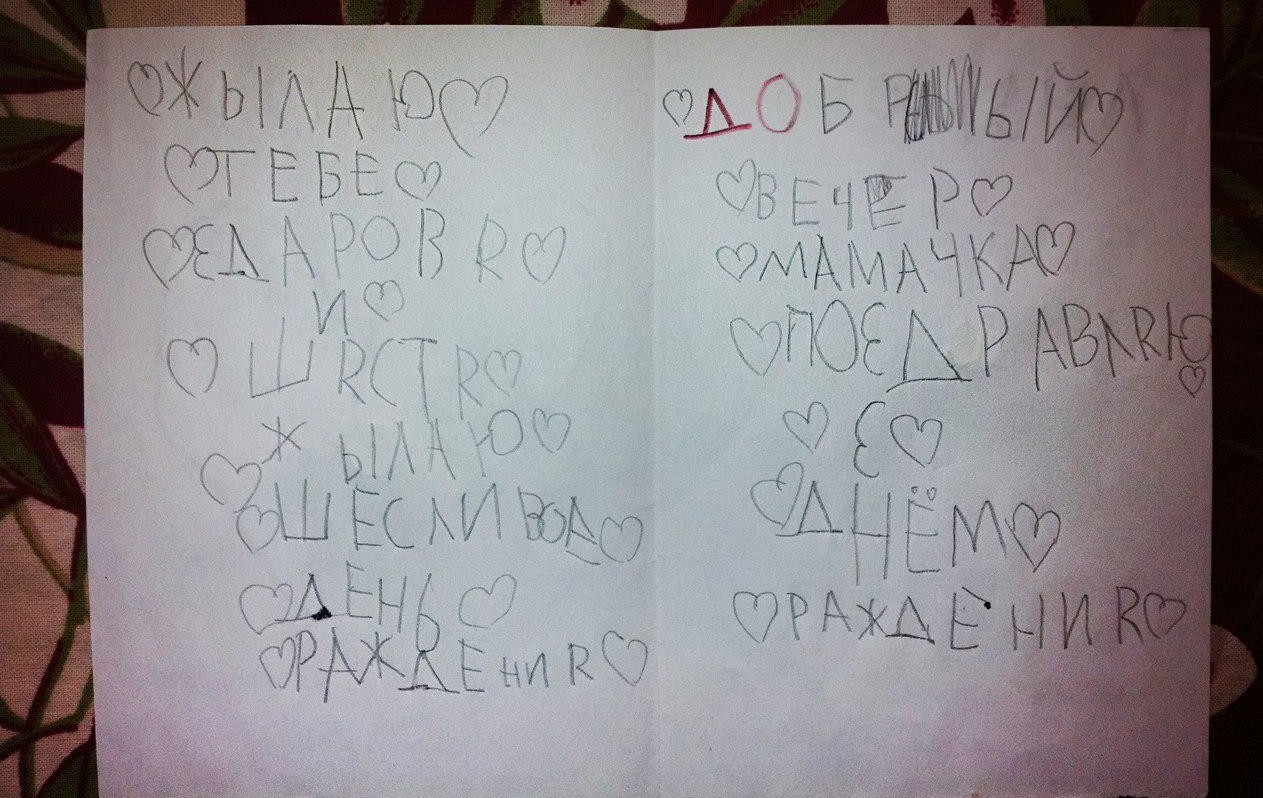 ЖЫЛАЮ
ТЕБЕ
ЗДАРОВЯ
И
ШЯСТЯ
ЖЫЛАЮ
ШЕСЛИВОД
ДЕНЬ
РАЖДЕНИЯ
ДОБРЫЙ
ВЕЧЕР
МАМАЧКА
ПОЗДРАВЛЯЮ
З
ДНЁМ
РАЖДЕНИЯ